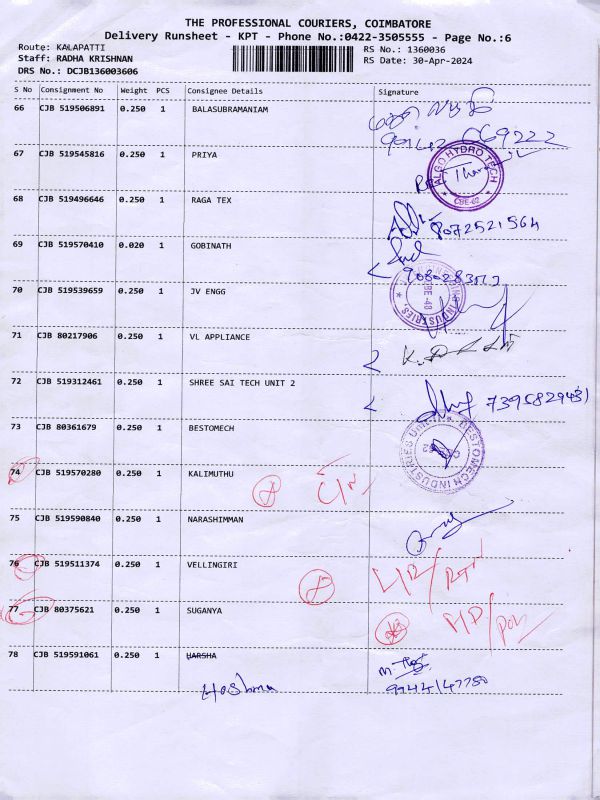 THE PROFESSIONAL COURIERS, COIMBATORE
Delivery Runsheet - KPT - Phone No.:0422-3505555 - Page No.:6
Route: KALAPATTI
RS No.: 1360036
Staff: RADHA KRISHNAN
RS Date: 30-Apr-2024
DRS No.: DCJB136003606
S No Consignment No Weight PCS Consignee Details Signature
66 CJB 519506891 0.250 1 BALASUBRAMANIAM
67 CJB 519545816 0.250 1 PRIYA
ALGO HYDRO TECH
CBE-62
68 CJB 519496646 0.250 1 RAGA TEX
8072521564
69 CJB 519570410 0.020 1 GOBINATH
70 CJB 519539659 0.250 1 JV ENGG
INDUSTRIES
71 CJB 80217906 0.250 1 VL APPLIANCE
72 CJB 519312461 0.250 1 SHREE SAI TECH UNIT 2
7395829431
73 CJB 80361679 0.250 1 BESTOMECH
BESTOMECH INDUSTRIES
74 CJB 519570280 0.250 1 KALIMUTHU
75 CJB 519590840 0.250 1 NARASHIMMAN
76 CJB 519511374 0.250 1 VELLINGIRI
77 CJB 80375621 0.250 1 SUGANYA
78 CJB 519591061 0.250 1 HARSHA